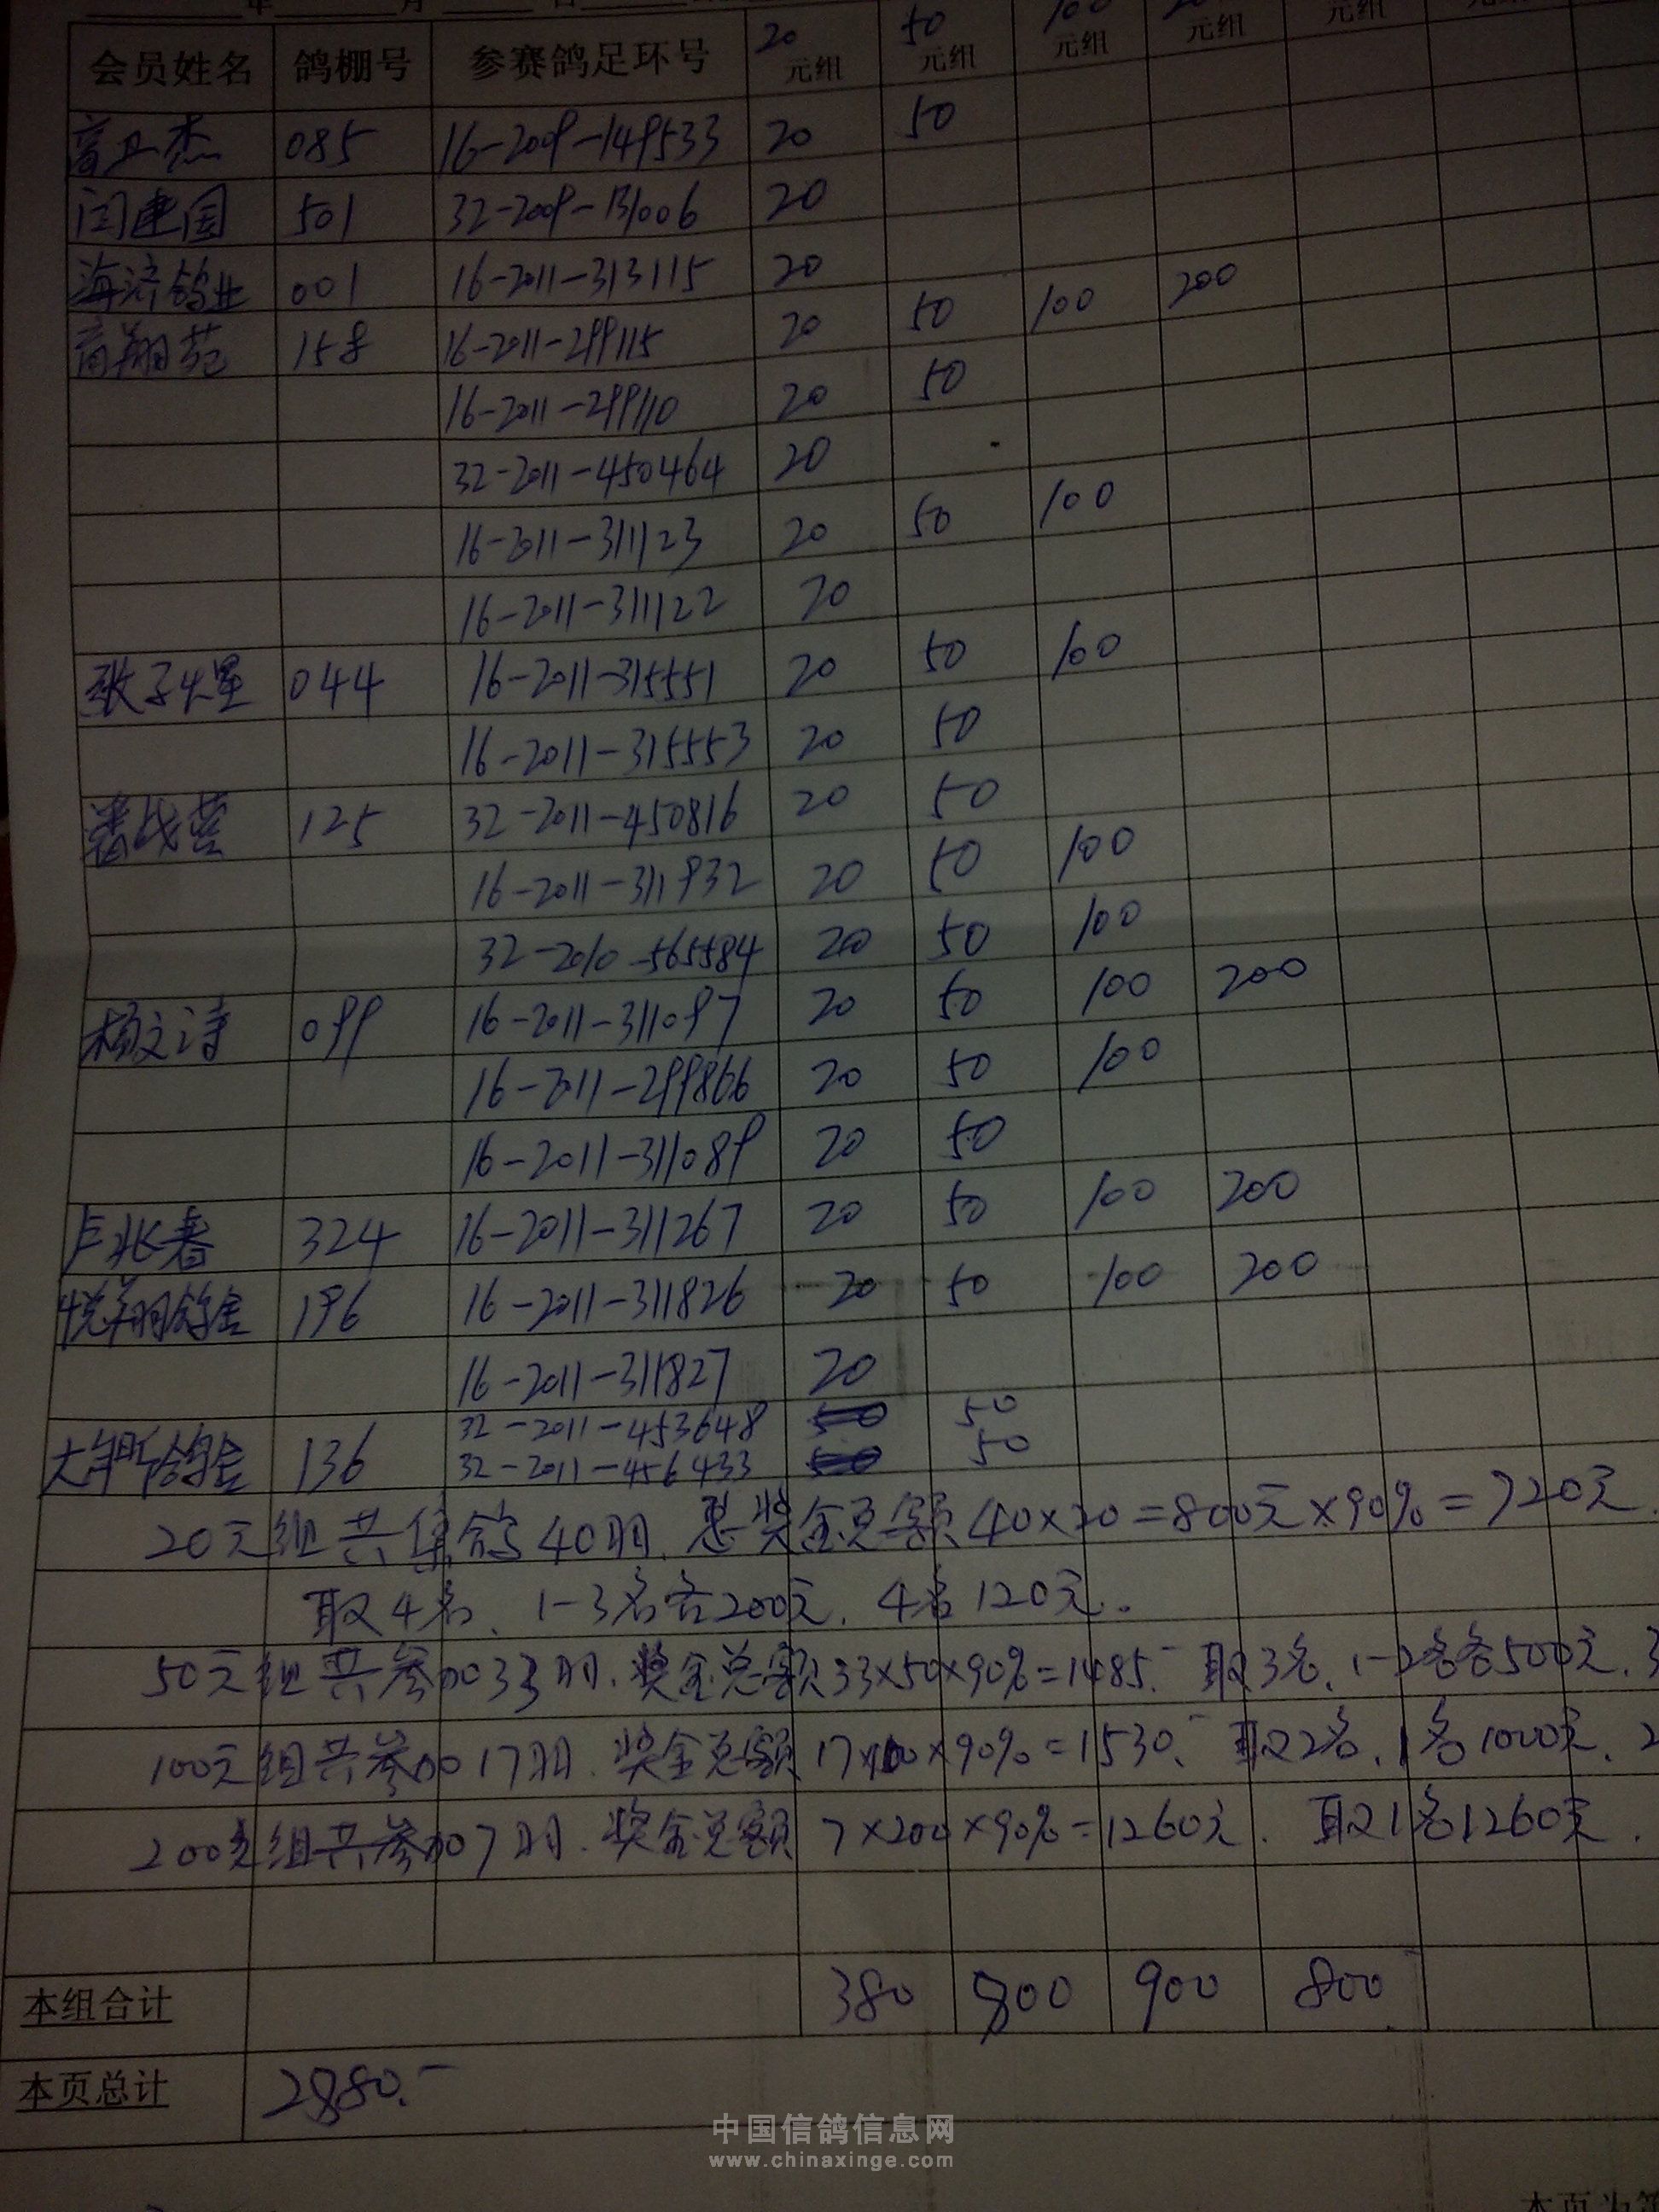 年 月 日
会员姓名 鸽棚号 参赛鸽足环号 20元组 50元组 100元组 元组 元组
高卫杰 085 16-2009-149533 20 50
闫建国 501 32-2009-131006 20
海济鸽业 001 16-2011-313115 20
高翔苑 158 16-2011-299115 20 50 100 200
16-2011-299110 20 50
32-2011-450464 20
16-2011-311123 20 50 100
16-2011-311122 20
张子煋 044 16-2011-315551 20 50 100
16-2011-315553 20 50
125 32-2011-450816 20 50
16-2011-311932 20 50 100
32-2010-565584 20 50 100
杨文涛 099 16-2011-311097 20 50 100 200
16-2011-299866 20 50 100
16-2011-311089 20 50
卢兆春 324 16-2011-311267 20 50 100 200
悦翔鸽舍 196 16-2011-311826 20 50 100 200
16-2011-311827 20
鸽舍 136 32-2011-453648 50
32-2011-456433 50
20元组共集鸽40羽.总奖金总额40×20=800元×90%=720元.
取4名、1-3名各200元.4名120元.
50元组共参加33羽.奖金总额33×50×90%=1485.- 取3名.1-2名各500元.3
100元组共参加17羽.奖金总额17×100×90%=1530.- 取2名.1名1000元.2
200元组共参加7羽.奖金总额7×200×90%=1260元. 取1名1260元.
本组合计 380 800 900 800
本页总计 2880.-
中国信鸽信息网
www.chinaxinge.com